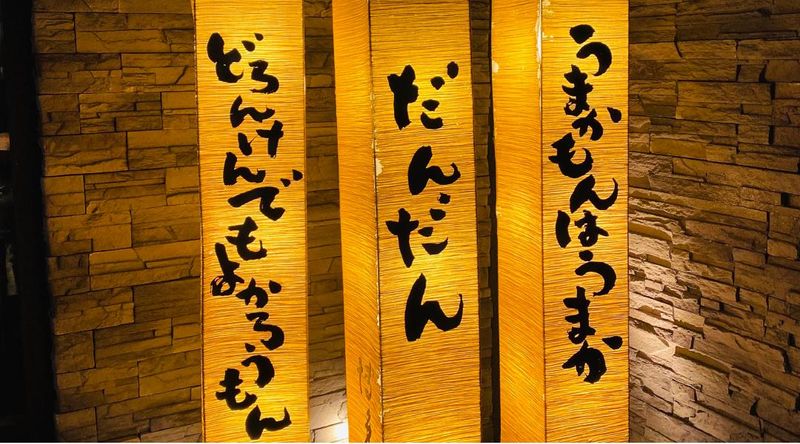 うまかもんはうまか
だんだん
どろんけんでもよかろうもん